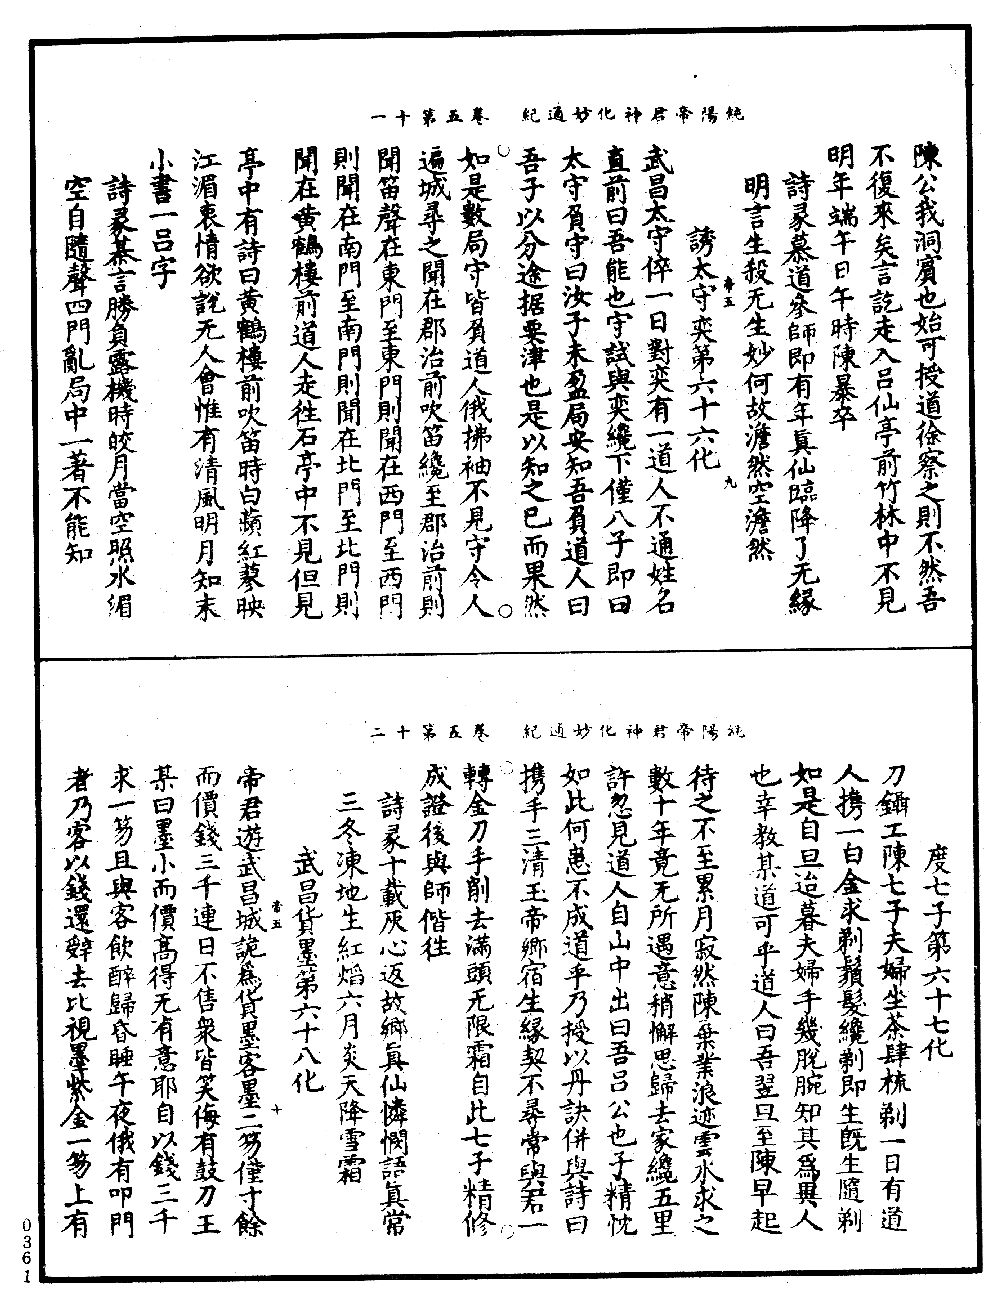 純陽帝君神化妙通紀　卷五第十一
陳公我洞賓也始可授道徐察之則不然吾
不復來矣言訖走入呂仙亭前竹林中不見
明年端午日午時陳暴卒
詩彖慕道參師即有年真仙臨降了无緣
明言生殺无生妙何故澹然空澹然
誘太守奕第六十六化
帝五
九
武昌太守倅一日對奕有一道人不通姓名
直前曰吾能也守試與奕纔下僅八子即曰
太守負守曰汝子未盈局安知吾負道人曰
吾子以分途据要津也是以知之已而果然
如是數局守皆負道人俄拂袖不見守令人
遍城尋之聞在郡治前吹笛纔至郡治前則
聞笛聲在東門至東門則聞在西門至西門
則聞在南門至南門則聞在北門至北門則
聞在黃鶴樓前道人走徃石亭中不見但見
亭中有詩曰黃鶴樓前吹笛時白蘋紅蓼映
江湄衷情欲說无人會惟有清風明月知末
小書一呂字
詩彖棊言勝負露機時皎月當空照水湄
空自隨聲四門亂局中一著不能知
純陽帝君神化妙通紀　卷五第十二
度七子第六十七化
刀鑷工陳七子夫婦坐茶肆梳剃一日有道
人携一白金求剃鬚髮纔剃即生旣生隨剃
如是自旦迨暮夫婦手幾脫腕知其爲異人
也幸教某道可乎道人曰吾翌旦至陳早起
待之不至累月寂然陳棄業浪迹雲水求之
數十年竟无所遇意稍懈思歸去家纔五里
許忽見道人自山中出曰吾呂公也子精忱
如此何患不成道乎乃授以丹訣併與詩曰
携手三清玉帝鄉宿生緣契不尋常與君一
轉金刀手削去滿頭无限霜自此七子精修
成證後與師偕徃
詩彖十載灰心返故鄉真仙憐憫語真常
三冬凍地生紅焰六月炎天降雪霜
武昌貨墨第六十八化
帝五
十
帝君遊武昌城詭爲貨墨客墨二笏僅寸餘
而價錢三千連日不售衆皆笑侮有鼓刀王
某曰墨小而價高得无有意耶自以錢三千
求一笏且與客飲醉歸昏睡午夜俄有叩門
者乃客以錢還辭去比視墨紫金一笏上有
0361